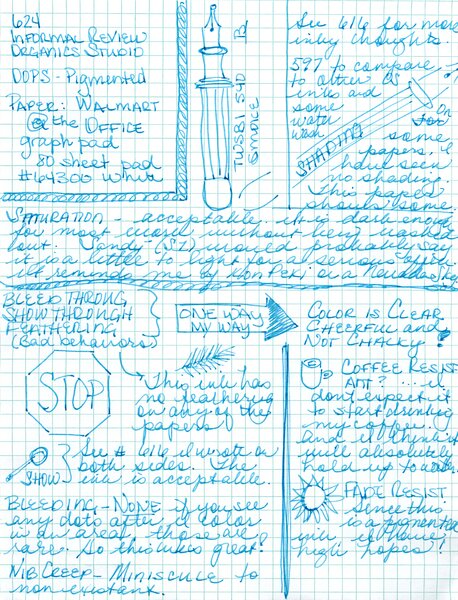 624
INFORMAL REVIEW
ORGANICS STUDIO
OOPS - Pigmented
PAPER: WALMART
@ the OFFICE
graph pad
80 sheet pad
#64300 White
TWSBI 540
SMOKE
B
See 616 for more
inky thoughts.
597 to compare
to other OS
inks and
some
water
wash
SHADING
On
some
papers, I
have seen
no shading.
This paper
should some
SATURATION - acceptable, it is dark enough
for most work without being washed
out. Sandy (S1) would probably say
it is a little to light for a serious
it reminds me of Kon Peki or a Nevada Sky
BLEED THROUGH
SHOW THROUGH
FEATHERING
(Bad behaviors)
ONE WAY
MY WAY
STOP
This ink has
no feathering
on any of the
papers
SHOW
See # 616 I wrote on
both sides. The
ink is acceptable.
BLEEDING - NONE if you see
any dots after I color
in an area, those are
rare. So this inks great!
NIB CREEP - MINISCULE to
non existant.
COLOR IS CLEAR
CHEERFUL and
NOT CHALKY!
COFFEE RESIST
ANT? ... I
don't expect it
to start drinking
my coffee.
and I think it
will absolutely
hold up to water.
FADE RESIST
Since this
is a pigmented
ink I have
high hopes!